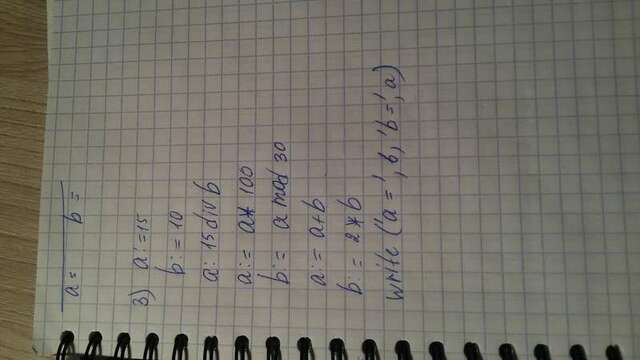 a= b=
3) a:=15
b:=10
a: 15 div b
a:= a* 100
b:= a mod 30
a:= a+b
b:= 2*b
write ('a=', b, 'b=', a)